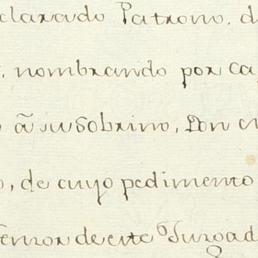 clarado Patrono, d
nombrando por ca
â su sobrino, Don
, de cuyo pedimento
Señor de este Juzgad